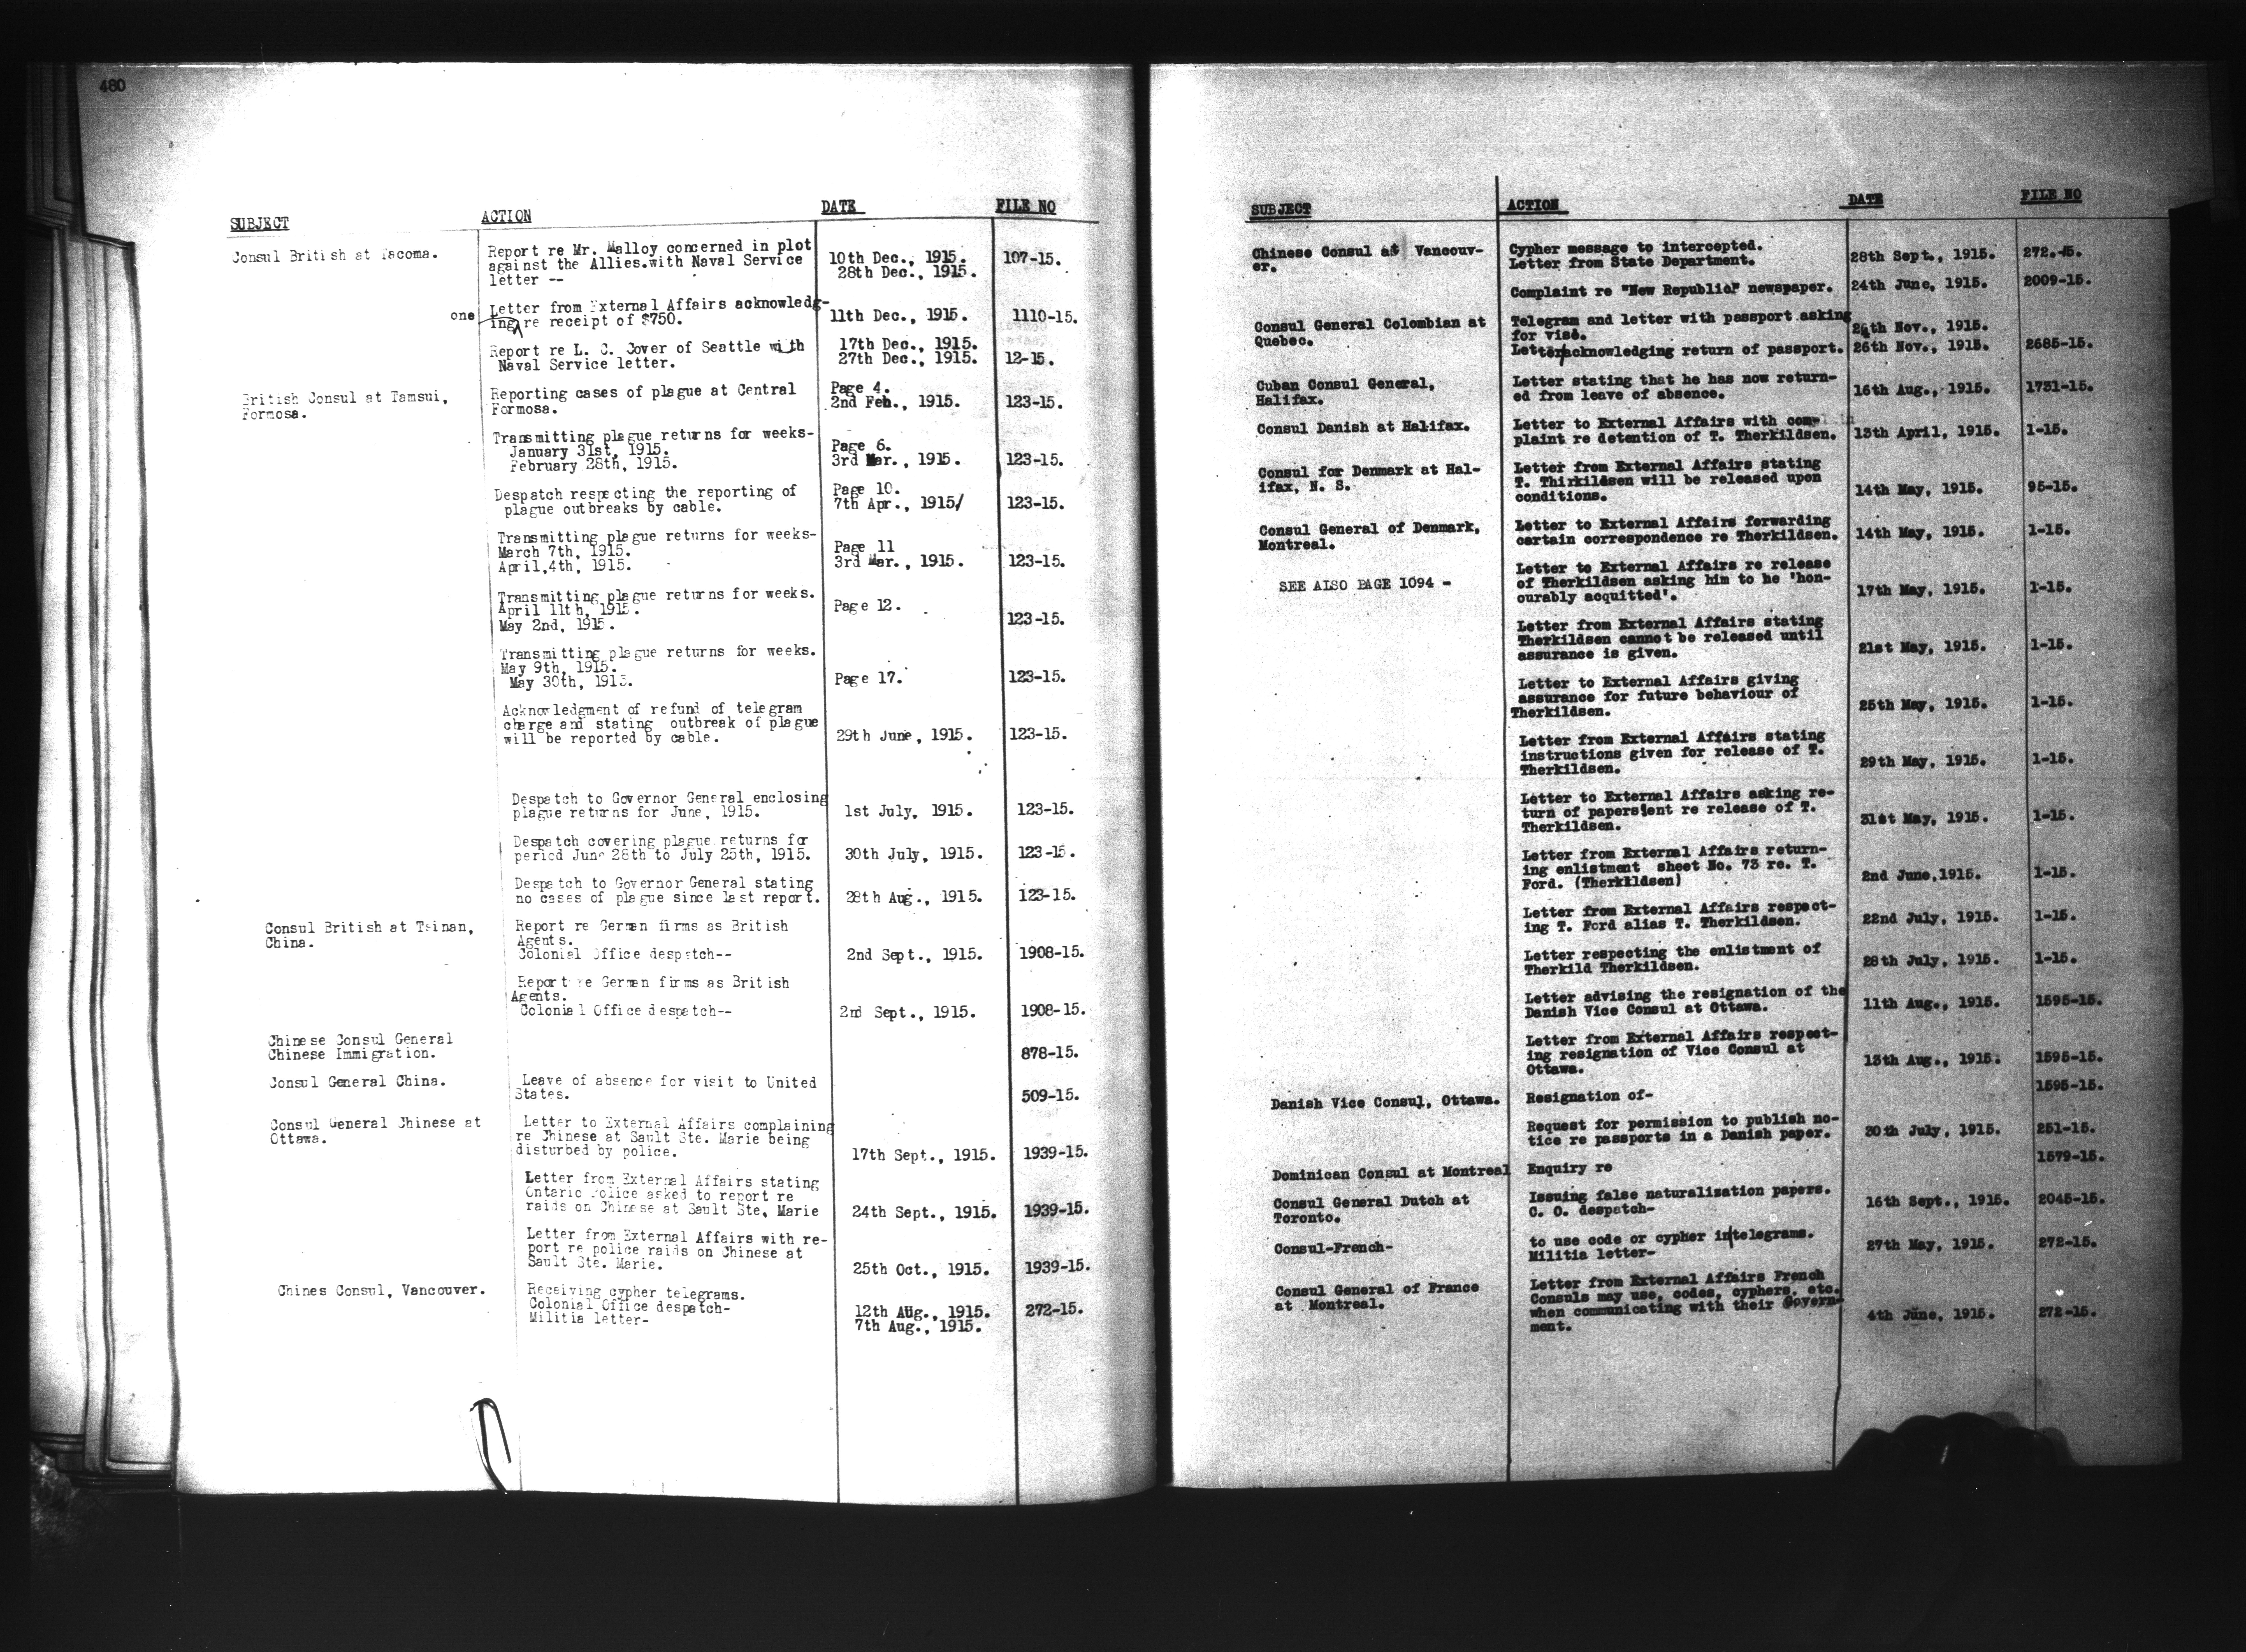 480
SUBJECT ACTION DATE FILE NO
Consul British at Tacoma. Report re Mr. Malloy concerned in plot
against the Allies.with Naval Service 10th Dec., 1915. 107-15.
letter -- 28th Dec., 1915.
Letter from External Affairs acknowledg-
one ing re receipt of $750. 11th Dec., 1915. 1110-15.
Report re L. C. Cover of Seattle with 17th Dec., 1915.
Naval Service letter. 27th Dec., 1915. 12-15.
British Consul at Tamsui, Reporting cases of plague at Central Page 4.
Formosa. Formosa. 2nd Feb., 1915. 123-15.
Transmitting plague returns for weeks-
January 31st, 1915. Page 6.
February 28th, 1915. 3rd Mar., 1915. 123-15.
Despatch respecting the reporting of Page 10.
plague outbreaks by cable. 7th Apr., 1915/ 123-15.
Transmitting plague returns for weeks-
March 7th, 1915. Page 11
April,4th, 1915. 3rd Mar., 1915. 123-15.
Transmitting plague returns for weeks.
April 11th, 1915. Page 12.
May 2nd, 1915. 123-15.
Transmitting plague returns for weeks.
May 9th, 1915.
May 30th, 1915. Page 17. 123-15.
Acknowledgment of refund of telegram
charge and stating outbreak of plague
will be reported by cable. 29th June, 1915. 123-15.
Despatch to Governor General enclosing
plague returns for June, 1915. 1st July, 1915. 123-15.
Despatch covering plague returns for
period June 28th to July 25th, 1915. 30th July, 1915. 123-15.
Despatch to Governor General stating
no cases of plague since last report. 28th Aug., 1915. 123-15.
Consul British at Tsinan, Report re German firms as British
China. Agents.
Colonial Office despatch-- 2nd Sept., 1915. 1908-15.
Report re German firms as British
Agents.
Colonial Office despatch-- 2nd Sept., 1915. 1908-15.
Chinese Consul General
Chinese Immigration. 878-15.
Consul General China. Leave of absence for visit to United
States. 509-15.
Consul General Chinese at Letter to External Affairs complaining
Ottawa. re Chinese at Sault Ste. Marie being
disturbed by police. 17th Sept., 1915. 1939-15.
Letter from External Affairs stating
Ontario Police asked to report re
raids on Chinese at Sault Ste, Marie 24th Sept., 1915. 1939-15.
Letter from External Affairs with re-
port re police raids on Chinese at
Sault Ste. Marie. 25th Oct., 1915. 1939-15.
Chines Consul, Vancouver. Receiving cypher telegrams.
Colonial Office despatch- 12th Aug., 1915. 272-15.
Militia letter- 7th Aug., 1915.
SUBJECT ACTION DATE FILE NO
Chinese Consul at Vancouv- Cypher message to intercepted.
er. Letter from State Department. 28th Sept., 1915. 272.-15.
Complaint re "New Republic" newspaper. 24th June, 1915. 2009-15.
Consul General Colombian at Telegram and letter with passport asking
Quebec. for visé. 24th Nov., 1915.
Letter acknowledging return of passport. 26th Nov., 1915. 2685-15.
Cuban Consul General, Letter stating that he has now return-
Halifax. ed from leave of absence. 16th Aug., 1915. 1731-15.
Consul Danish at Halifax. Letter to External Affairs with com-
plaint re detention of T. Therkildsen. 13th April, 1915. 1-15.
Consul for Denmark at Hal- Letter from External Affairs stating
ifax, N. S. T. Thirkildsen will be released upon
conditions. 14th May, 1915. 95-15.
Consul General of Denmark, Letter to External Affairs forwarding
Montreal. certain correspondence re Therkildsen. 14th May, 1915. 1-15.
Letter to External Affairs re release
SEE ALSO PAGE 1094 - of Therkildsen asking him to he 'hon-
ourably acquitted'. 17th May, 1915. 1-15.
Letter from External Affairs stating
Therkildsen cannot be released until
assurance is given. 21st May, 1915. 1-15.
Letter to External Affairs giving
assurance for future behaviour of
Therkildsen. 25th May, 1915. 1-15.
Letter from External Affairs stating
instructions given for release of T.
Therkildsen. 29th May, 1915. 1-15.
Letter to External Affairs asking re-
turn of papers sent re release of T.
Therkildsen. 31st May, 1915. 1-15.
Letter from External Affairs return-
ing enlistment sheet No. 73 re. T.
Ford. (Therkildsen) 2nd June,1915. 1-15.
Letter from External Affairs respect-
ing T. Ford alias T. Therkildsen. 22nd July, 1915. 1-15.
Letter respecting the enlistment of
Therkild Therkildsen. 28th July, 1915. 1-15.
Letter advising the resignation of the
Danish Vice Consul at Ottawa. 11th Aug., 1915. 1595-15.
Letter from External Affairs respect-
ing resignation of Vice Consul at
Ottawa. 13th Aug., 1915. 1595-15.
Danish Vice Consul, Ottawa. Resignation of- 1595-15.
Request for permission to publish no-
tice re passports in a Danish paper. 30th July, 1915. 251-15.
Dominican Consul at Montreal Enquiry re 1579-15.
Consul General Dutch at Issuing false naturalization papers.
Toronto. C. O. despatch- 16th Sept., 1915. 2045-15.
Consul-French- to use code or cypher in telegrams.
Militia letter- 27th May, 1915. 272-15.
Consul General of France Letter from External Affairs French
at Montreal. Consuls may use, codes, cyphers, etc.
when communicating with their Govern-
ment. 4th June, 1915. 272-15.